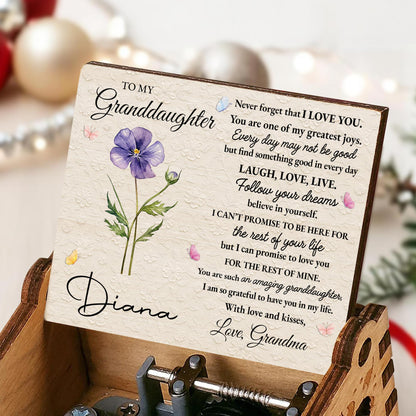 TO MY
Granddaughter
Diana
Never forget that I LOVE YOU.
You are one of my greatest joys.
Every day may not be good
but find something good in every day
LAUGH, LOVE, LIVE.
Follow your dreams
believe in yourself.
I CAN'T PROMISE TO BE HERE FOR
the rest of your life
but I can promise to love you
FOR THE REST OF MINE.
You are such an amazing granddaughter,
I am so grateful to have you in my life.
With love and kisses,
Love, Grandma